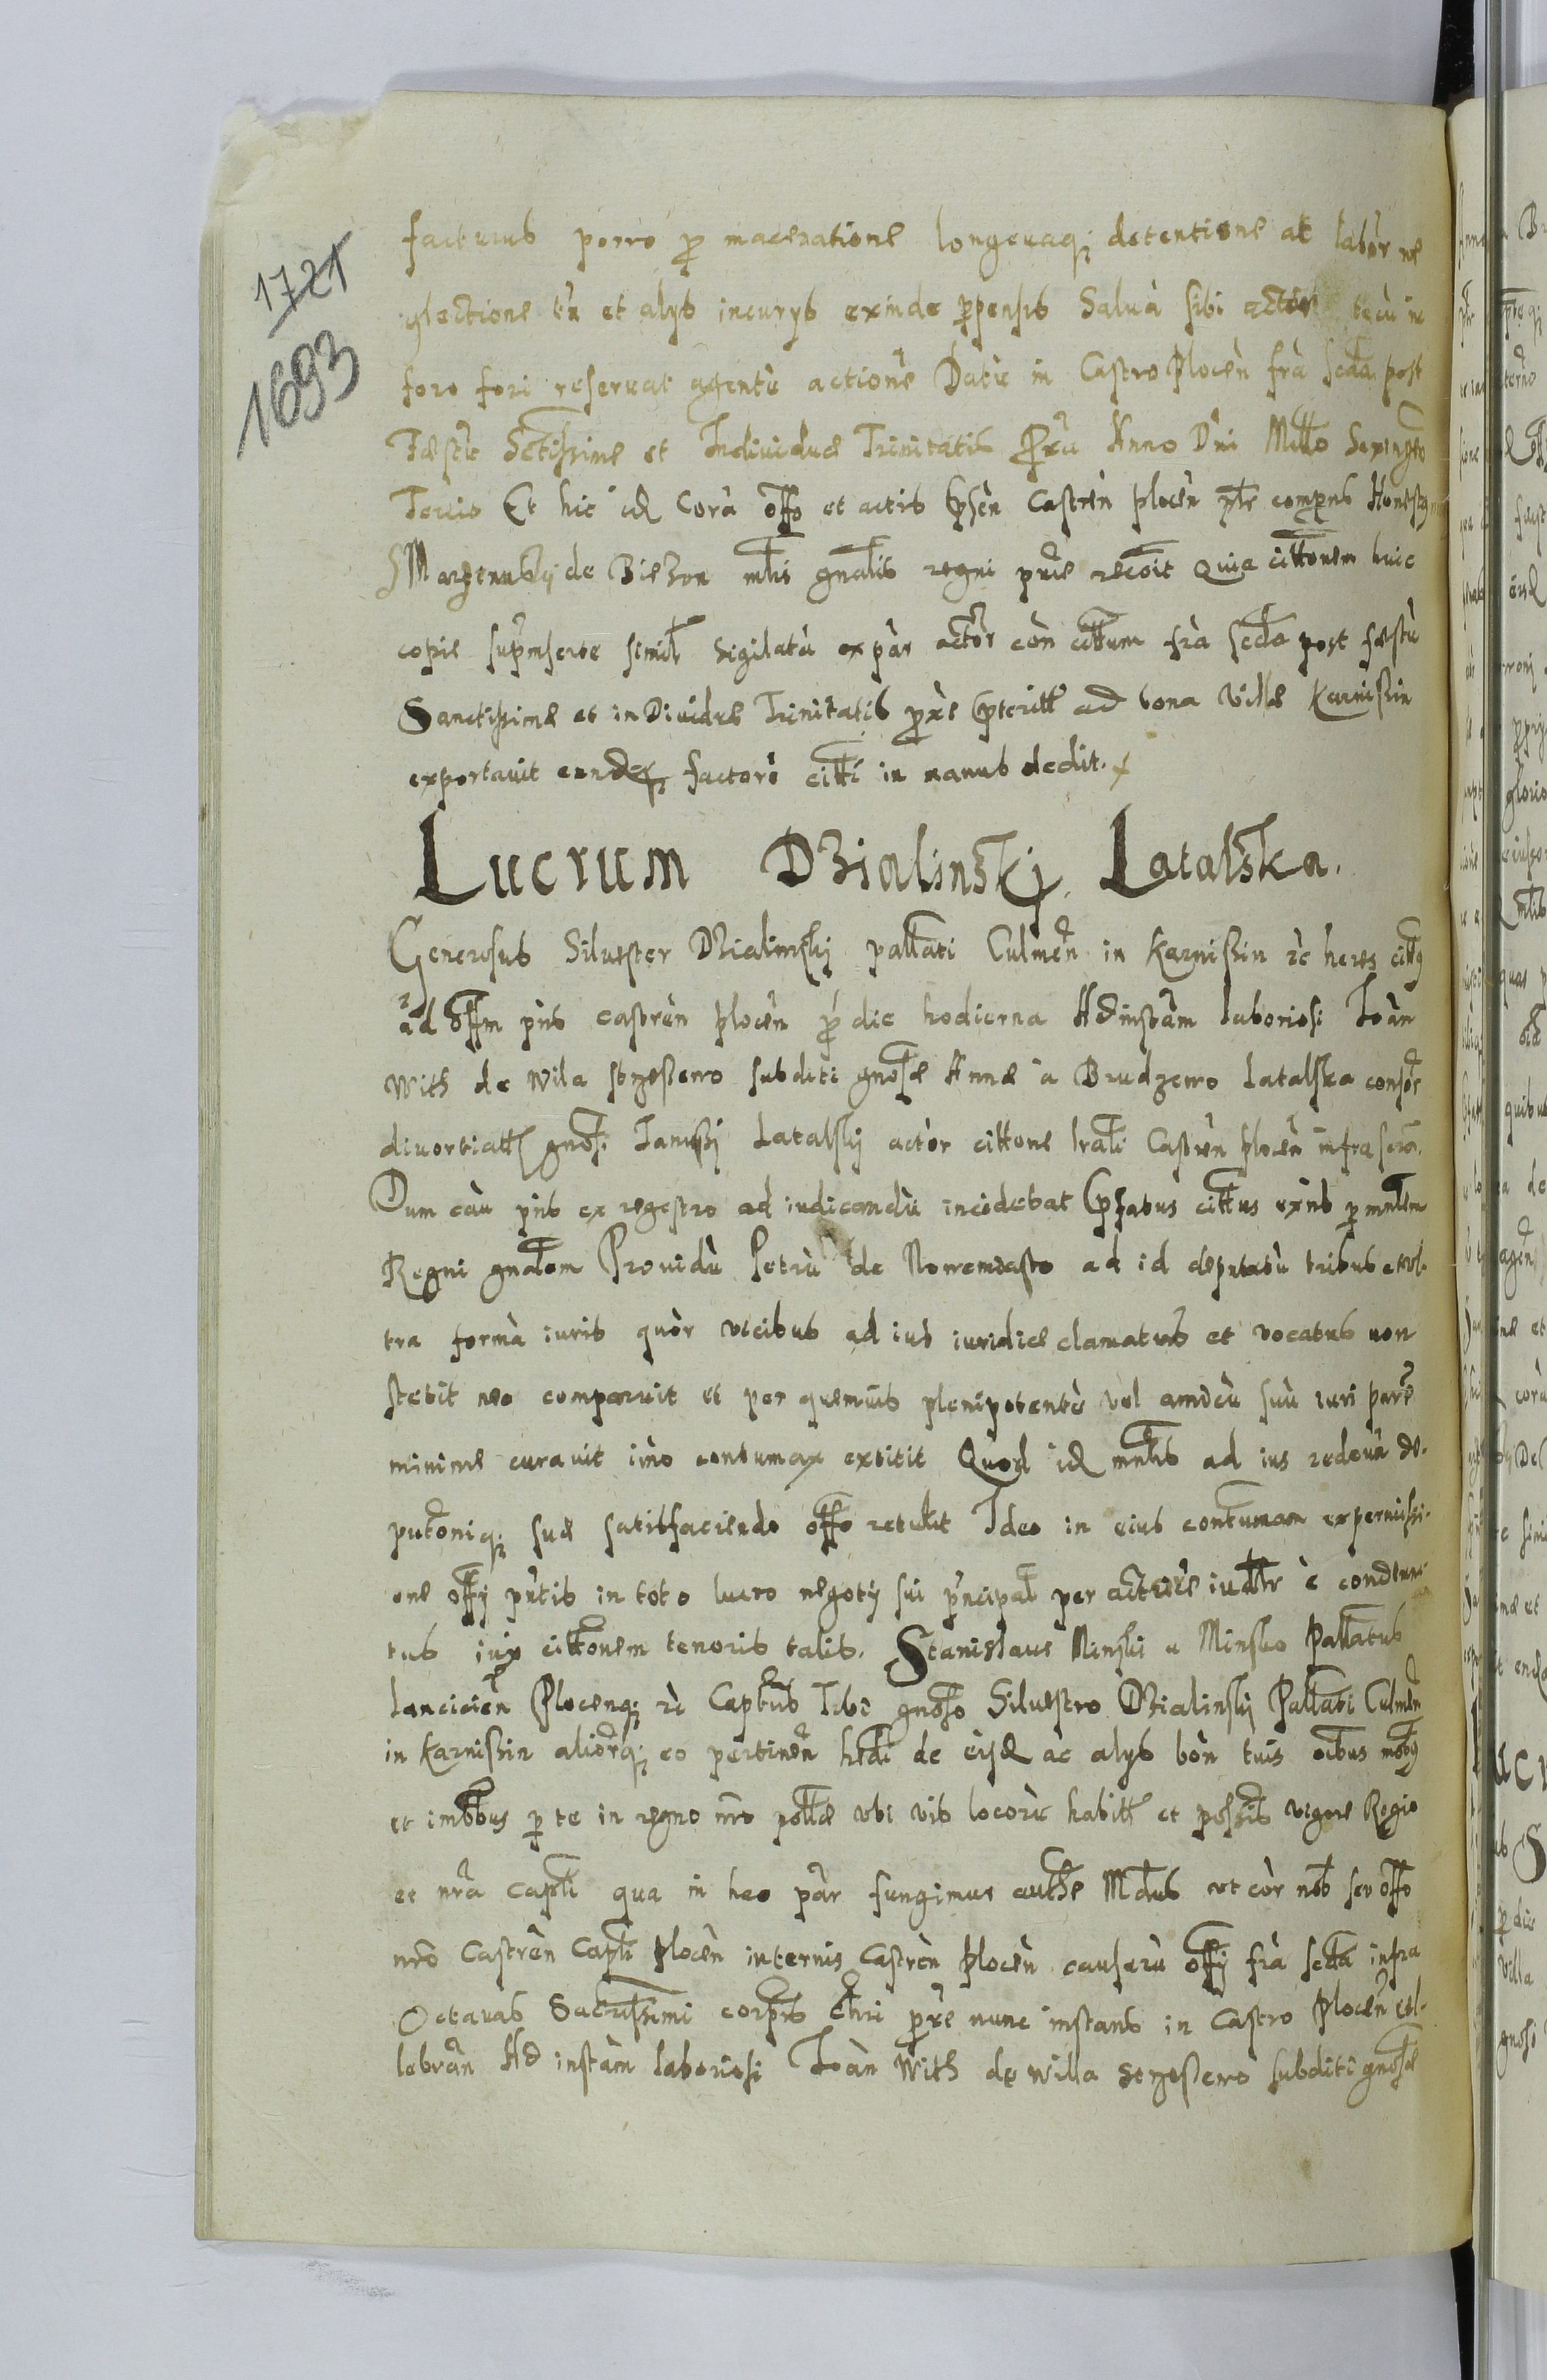 1721
1693
facturus porro p maceratione longevaq; detentione at labor ne
glectione tn et alys iniurys exinde ppensis Salua sibi actor tecu in
foro fori reseruat agente actione Datu in Castro Plocen fra Scda post
Fæstu Sctissime et Indiuiduæ Trinitatis Pxu Anno Dni Mille Sexngeo
Tercio Et hic id Cora offo et actis Cpsen Castren plocen plr compns Honest
Marzennskÿ de Bielzon mlis gnalis regni pnie recoit Quia cittonem huic
copie suprnserte simil sigilata ex par actor con cittum fra scda post fæstu
Sanctissimæ et indiuiduæ Trinitatis pxe Cpterit ad bona Villæ Karnissin
exportauit eandq factori citti in manus dedit.
Lucrum Dzialinskÿ Latalska.
Generosus Siluester Dzialinskij pallati Culmen in Karnissin rc heres citts
ad Offm pns castren plocen p die hodierna Ad instam laboriosi Joan
With de Wila strzeszewo subditi gnosæ Annæ a Brudzewo Latalska consor
diuortiatt gnosi Janussij Latalskij actor cittone lrali Castren plocen infrascra.
Dum cau pns ex regestro ad iudicandu incidebat Cpfatus cittus exns p mnlem
Regni gnalem Prouidu Petru de Nowemiasto ad id deputatu tribus et vl.
tra forma iuris quor vicibus ad ius iuridice clamatus et vocatus non
stetit nec comparuit et per quemuis plenipotente vel amicu suu iuri pare
minime curauit imo contumax extitit Quod id mnlis ad ius redeun de.
putoniq; suæ satisfaciendo offo retulit Ideo in eius contumam ex permissi.
one offÿ pntis in toto lucro negotÿ sui pncipal per actrice iudlr e condemna
tus iux cittonem tenoris talis. Stanislaus Minski a Minsko Pallatus
Lancicien Plocenq; rc Captus Tibi gnoso Siluestro Dzialinskij Pallati Culmen
in Karnissin aliorq; eo pertinen hrdi de eisd ac alys bon tuis oibus mobs
et imobbus p te in regno nro pollæ vbi vis locoru habitt et possis vigore Regio
et nra Capli qua in hec par fungimur authe Mdus vt cor nob seu offo
nro Castren Capli plocen internis Castren plocen causaru offÿ fra scda infra
Octauas Sacratissimi corpis Chri pxe nunc instans in Castro plocen cel.
lebran Ad instam laboriosi Joan With de willa strzeszewo subditi gnosæ